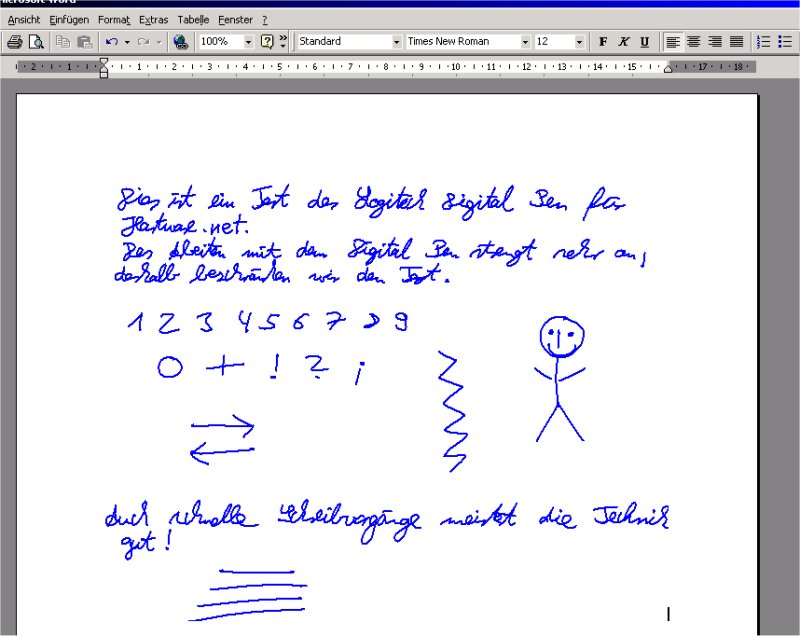 Ansicht Einfügen Format Extras Tabelle Fenster ?
100% Standard Times New Roman 12 F K U
2 1 1 2 3 4 5 6 7 8 9 10 11 12 13 14 15 17 18
Dies ist ein Test des Logitech Digital Pen für
Hartware.net.
Das mit dem Digital Pen strengt sehr an,
deshalb beschränken wir den Text.
1 2 3 4 5 6 7 8 9
0 + ! ? ;
Auch schnelle Schreibvorgänge meistert die Technik
gut!